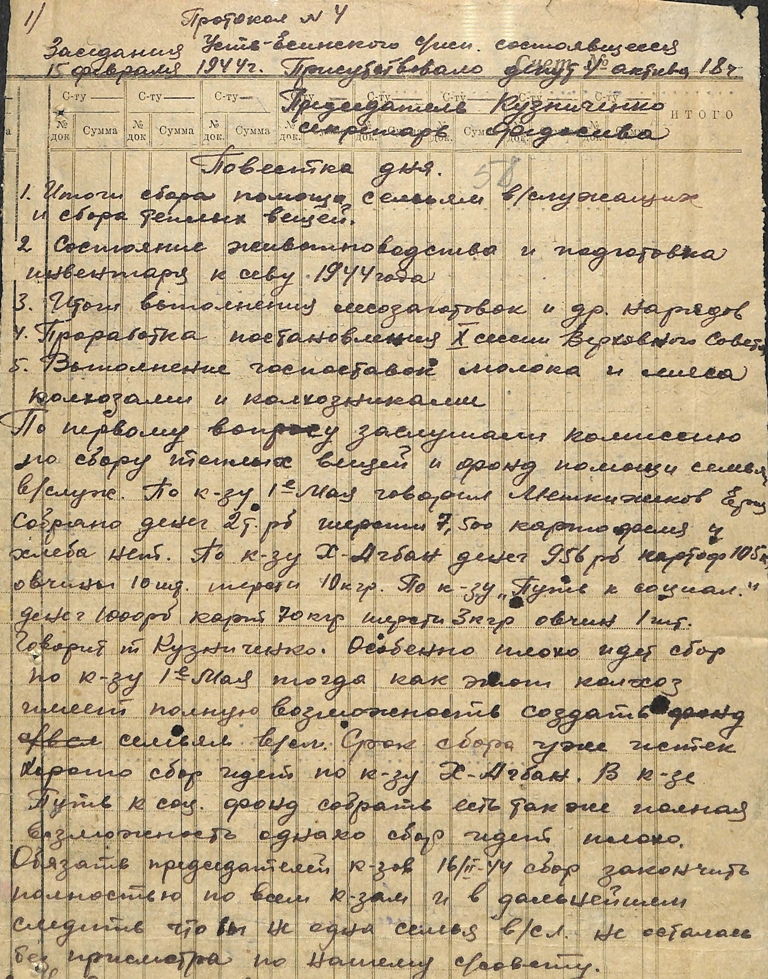 1/ Протокол № 4
Заседания Усть-Есинского с/исп. состоявшегося
15 февраля 1944г. Присутствовало депут 4 актива 18 ч
С-ту С-ту С-ту
Председатель Кузниченко ИТОГО
№ док Сумма № док Сумма № док Сумма № док секретарь Федосива
58
Повестка дня.
1. Итоги сбора помощи семьям в/служащих
и сбора теплых вещей.
2 Состояние животноводства и подготовка
инвентаря к севу 1944 года
3. Итоги выполнения лесозаготовок и др. нарядов
4. Проработка постановления X сессии Верховного Совета
5. Выполнение госпоставок молока и мяса
колхозами и колхозниками
По первому вопросу заслушали комиссию
по сбору теплых вещей и фонд помощи семьям
в/служ. По к-зу 1е Мая говорил
Собрано денег 2т. рб шерсти 7,500 картофеля и
хлеба нет. По к-зу Х-Агбан денег 956 рб картоф 105 к
овчины 10 шт. шерсти 10 кгр. По к-зу „Путь к социал."
денег 1000 рб карт 70 кгр шерсти 3 кгр овчин 1 шт.
Говорит т Кузниченко. Особенно плохо идет сбор
по к-зу 1е Мая тогда как этот колхоз
имеет полную возможность создать фонд
семьям в/сл. Срок сбора уже истек
Хорошо сбор идет по к-зу Х-Агбан. В к-зе
Путь к соц. фонд собрать есть также полная
возможность однако сбор идет плохо.
Обязать председателей к-зов 16/II-44 сбор закончить
полностью по всем к-зам и в дальнейшем
следить что б не одна семья в/сл. не осталась
без присмотра по нашему с/совету.